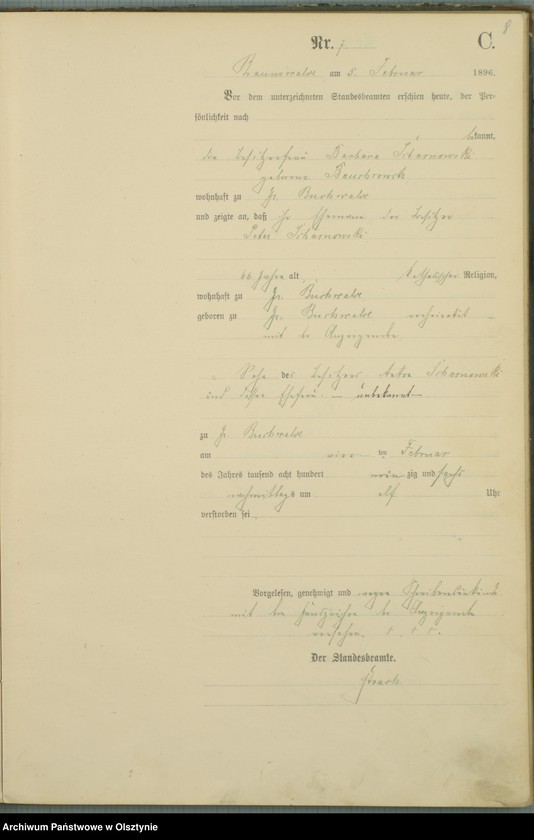 8
Nr. 7. C.
am 5. Februar 1896.
Vor dem unterzeichneten Standesbeamten erschien heute, der Per-
sönlichkeit nach
bekannt,
die Besitzerfrau Barbara
geborene
wohnhaft zu Gr. Buchwalde
und zeigte an, daß ihr Ehemann der Besitzer
Peter
66 Jahre alt, katholischer Religion,
wohnhaft zu Gr. Buchwalde
geboren zu Gr. Buchwalde verheiratet
mit der Anzeigenden
Sohn des Besitzers
und dessen Ehefrau – unbekannt –
zu Gr. Buchwalde
am vier ten Februar
des Jahres tausend acht hundert neun zig und sechs
nachmittags um elf Uhr
verstorben sei.
Vorgelesen, genehmigt und wegen Schreibensunkunde
mit dem Handzeichen der Anzeigenden
versehen. + + +.
Der Standesbeamte.
Archiwum Państwowe w Olsztynie